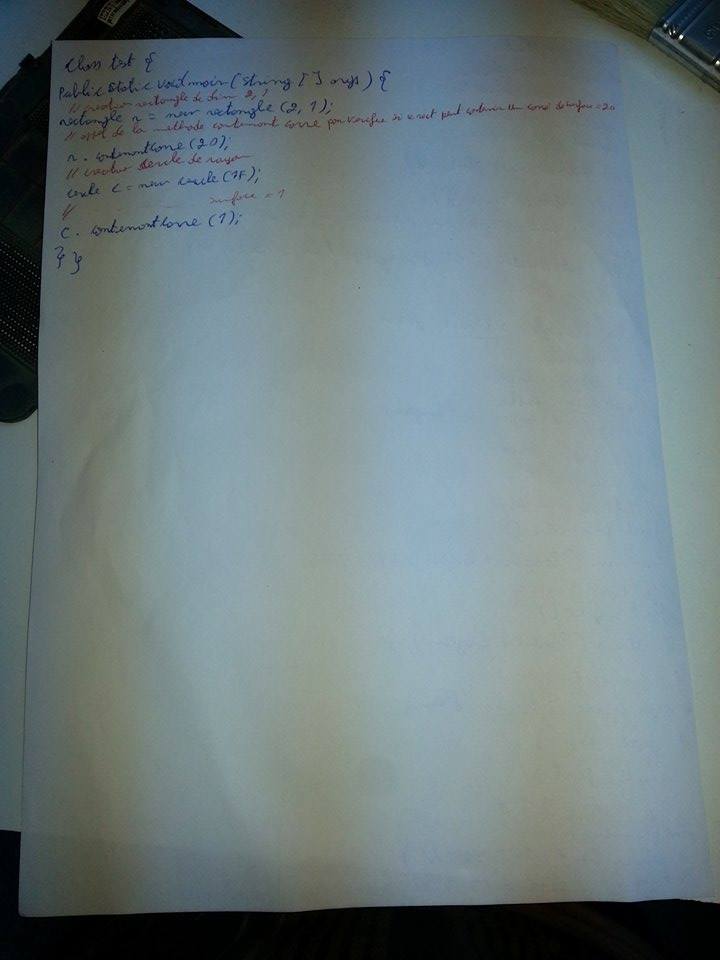 Class test {
Public Static Void main (String [ ] args) {
// creation rectangle de dim 2, 1
rectangle r = new rectangle (2, 1);
// appel de la methode contenant carre pour verifier si rect peut contenir un carré de surface = 20
r. contenantCarre (20);
// creation cercle de rayon
cercle c = new cercle (1F);
// surface = 1
c. contenantCarre (1);
} }